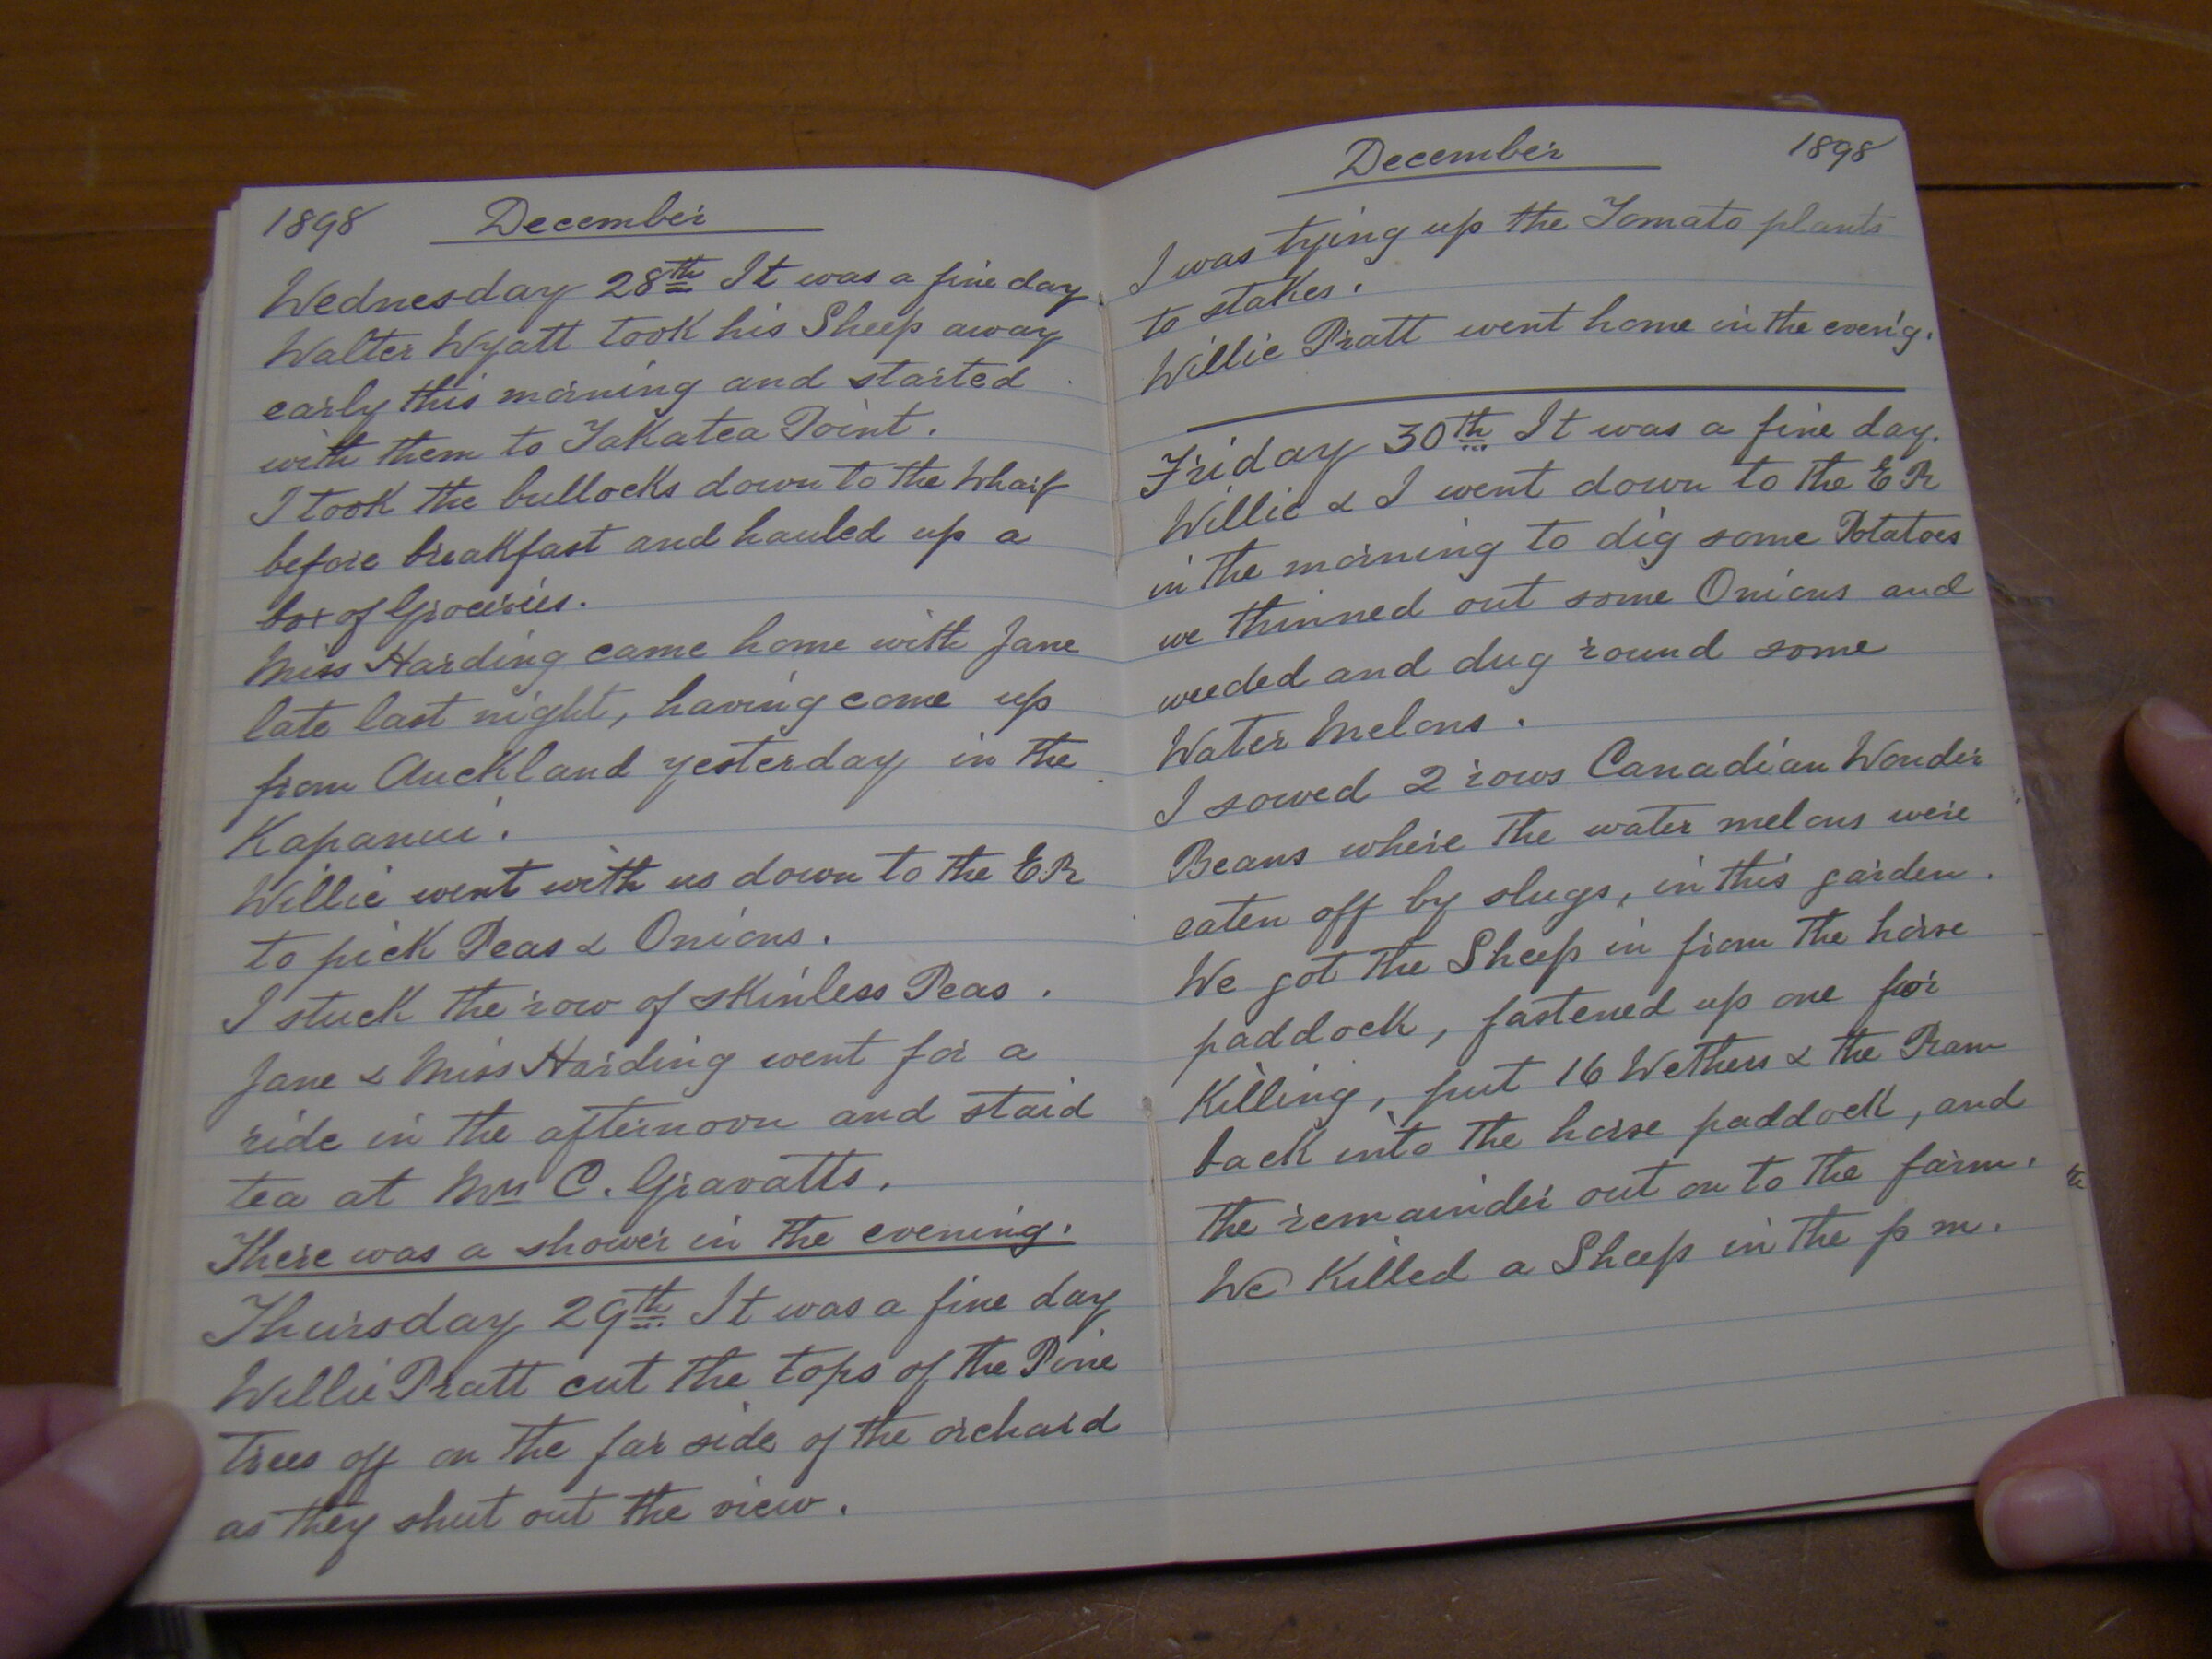 1898 December
Wednesday 28th It was a fine day
Walter Wyatt took his Sheep away
early this morning and started
with them to Takatea Point.
I took the bullocks down to the Wharf
before breakfast and hauled up a
box of Groceries.
Miss Harding came home with Jane
late last night, having come up
from Auckland yesterday in the
Kapanui.
Willie went with us down to the ER
to pick Peas & Onions.
I stuck the row of skinless Peas.
Jane & Miss Harding went for a
ride in the afternoon and staid
tea at Mrs C. Gravatts.
There was a shower in the evening.
Thursday 29th It was a fine day
Willie Pratt cut the tops of the Pine
trees off on the far side of the orchard
as they shut out the view.
December 1898
I was tying up the Tomato plants
to stakes.
Willie Pratt went home in the even'g.
Friday 30th It was a fine day.
Willie & I went down to the ER
in the morning to dig some Potatoes
we thinned out some Onions and
weeded and dug round some
Water Melons.
I sowed 2 rows Canadian Wonder
Beans where the water melons were
eaten off by slugs, in this garden.
We got the Sheep in from the horse
paddock, fastened up one for
Killing, put 16 Wethers & the Ram
back into the horse paddock, and
the remainder out on to the farm.
We Killed a Sheep in the p m.